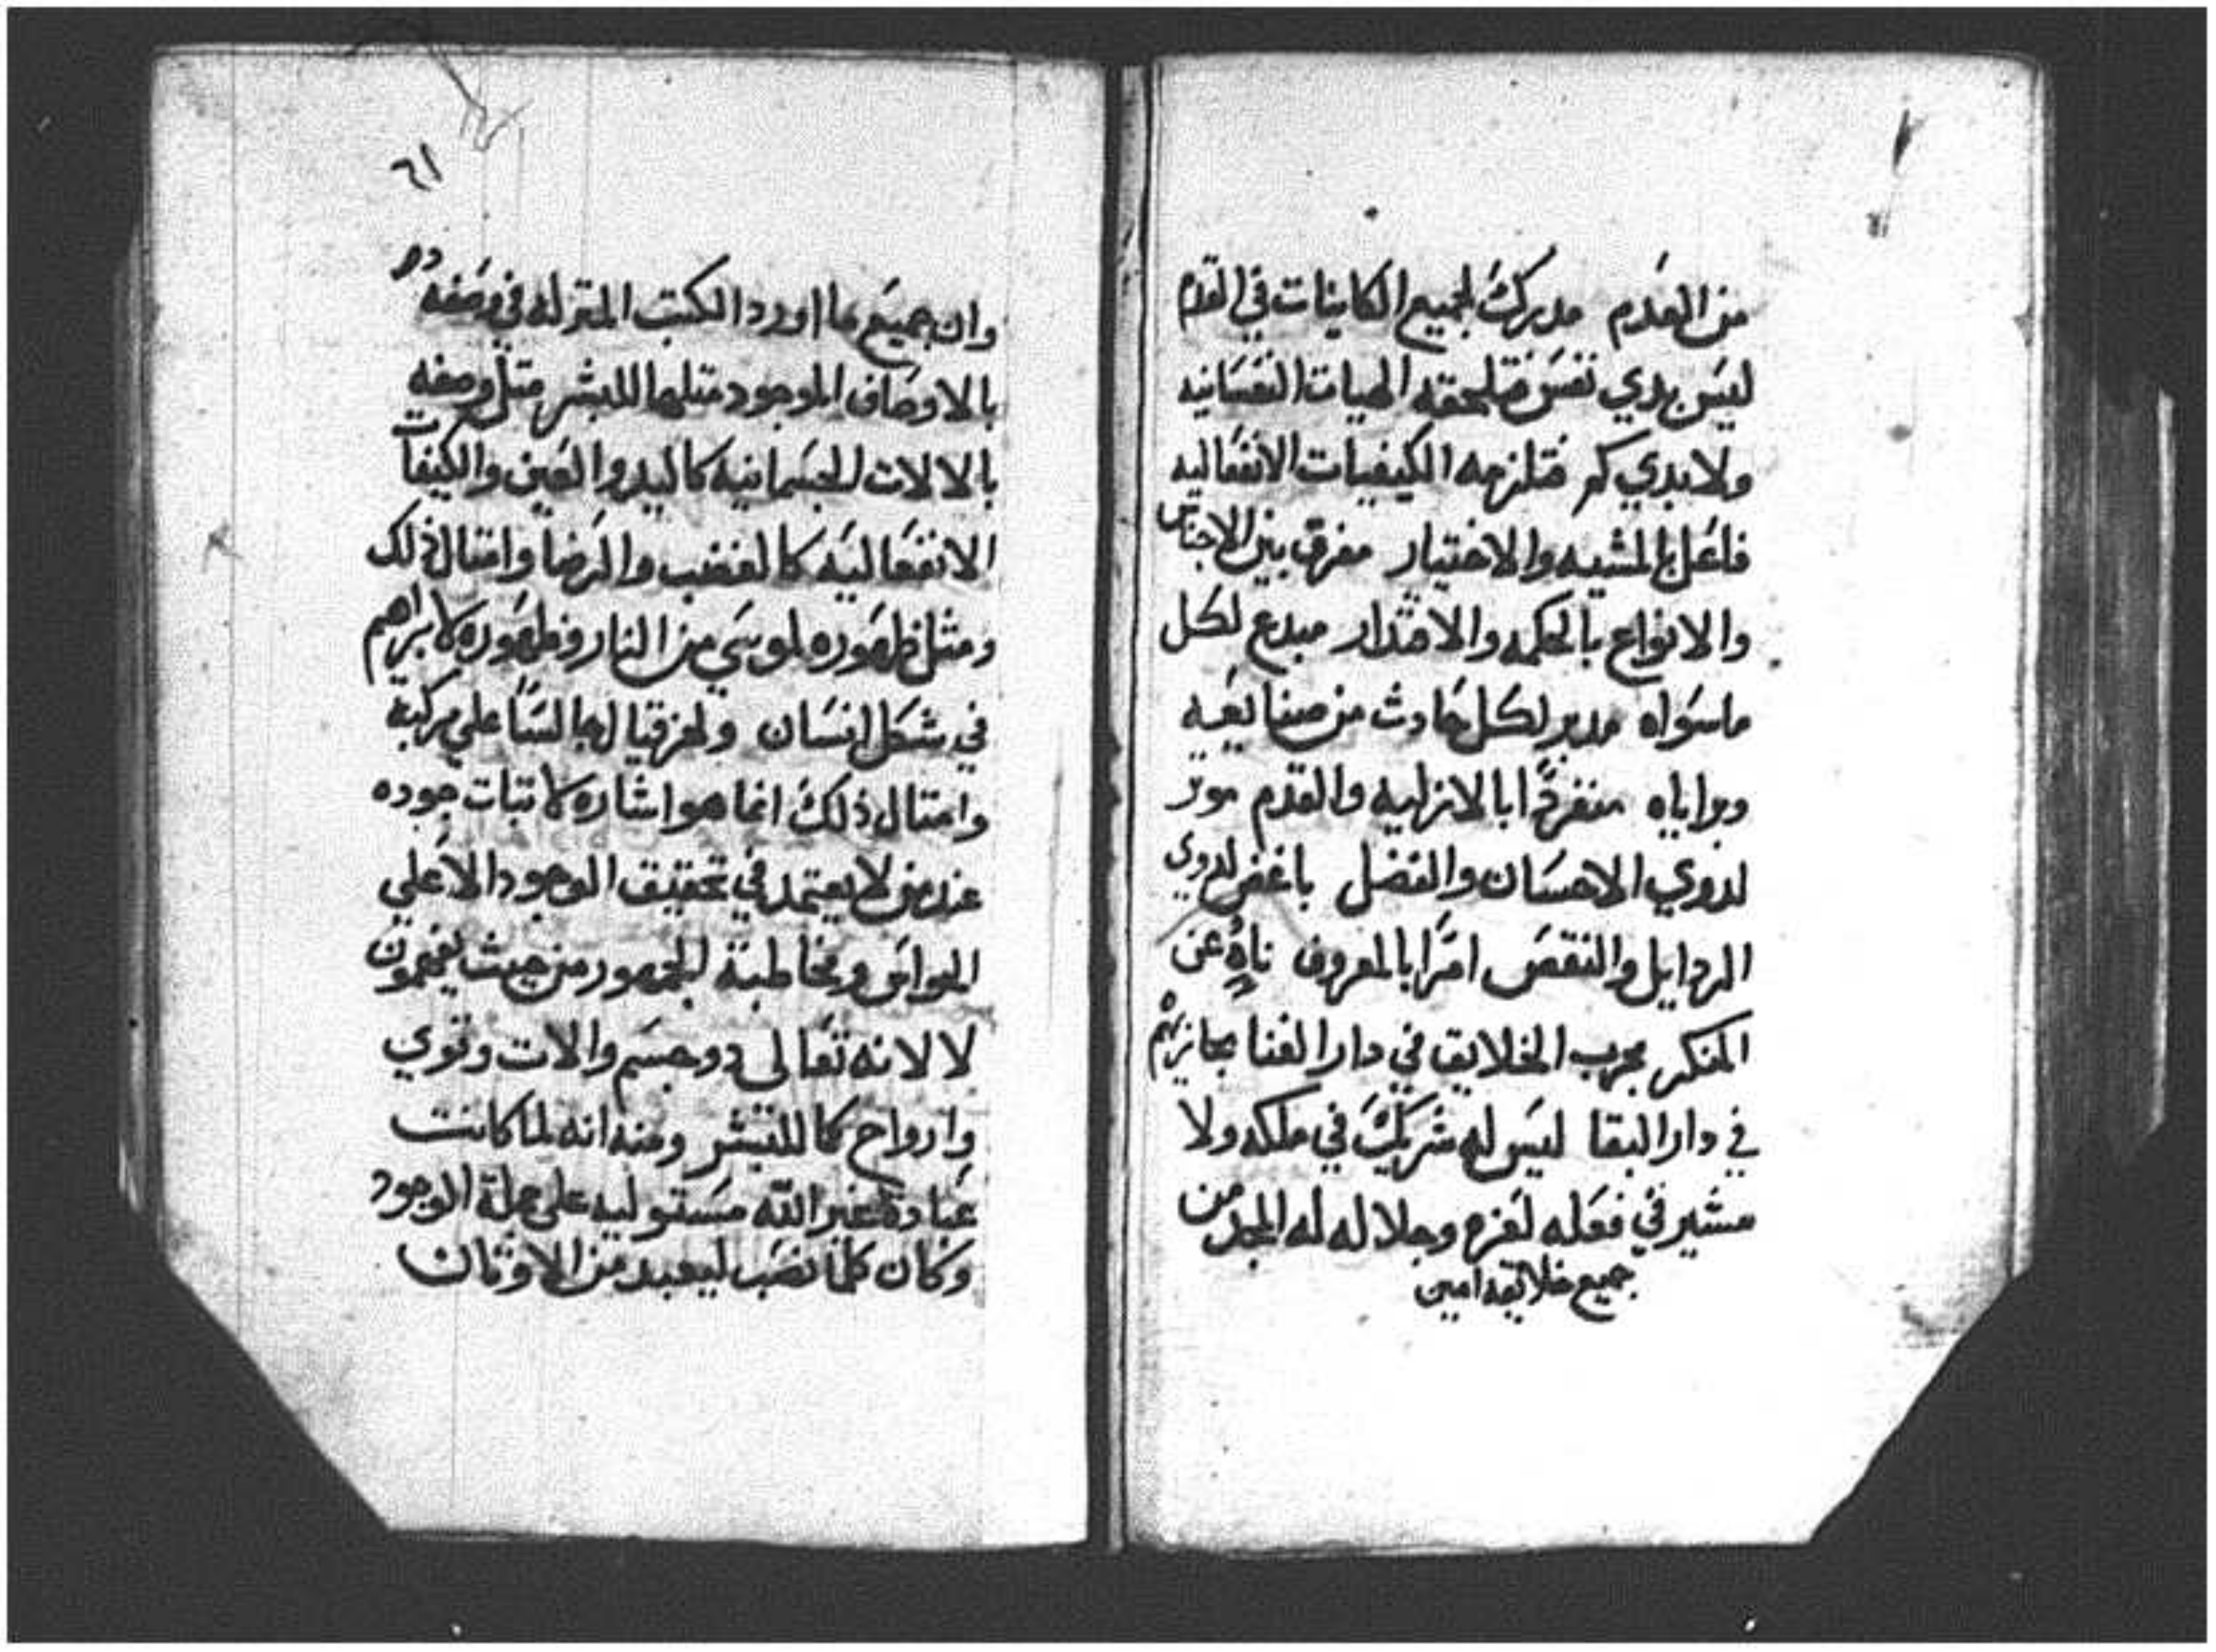 من العدم مدرك لجميع الكاينات في القدم
ليس بدي نفس فتلحقه الهيات النفسانيه
ولا بدي كم فتلزمه الكيفيات الانفعاليه
فاعل بالمشيه والاختيار مفرق بين الاجناس
والانواع بالحكمه والاقتدار مبدع لكل
ماسواه مدبر لكل حادث من صنايعه
وبراياه منفردًا بالازليه والقدم موتر
لدوي الاحسان والفضل باغض لدوي
الردايل والنقص امرًا بالمعروف ناهٍ عن
المنكر مجرب الخلايق في دار الفنا مجازيهم
في دار البقا ليس له شريك في ملكه ولا
مشير في فعله لعزه وجلاله له المجد من
جميع خلايقه امين
٦١
وان جميع ما اورد الكتب المنزله في وصفه
بالاوصاف الموجود متلها للبشر متل وصفه
بالالات الجسمانيه كاليد والعين والكيفات
الانفعاليه كالغضب والرضا وامتال ذلك
ومثل ظهوره لموسي من النار وظهوره لابراهم
في شكل انسان ولحزقيال جالسًا علي مركبة
وامتال ذلك انما هو اشاره لاتبات جوده
عند من لا يعتمد في تحقيق الوجود الا علي
الحواس ومخاطبة الجمهور من حيث يفهمون
لا لانه تعالي دو جسم والات وقوي
وارواح كما للبشر ومنه انه لما كانت
عبادة غير الله مستوليه علي جملة الوجود
وكان كلما نصب ليعبد من الاوتان